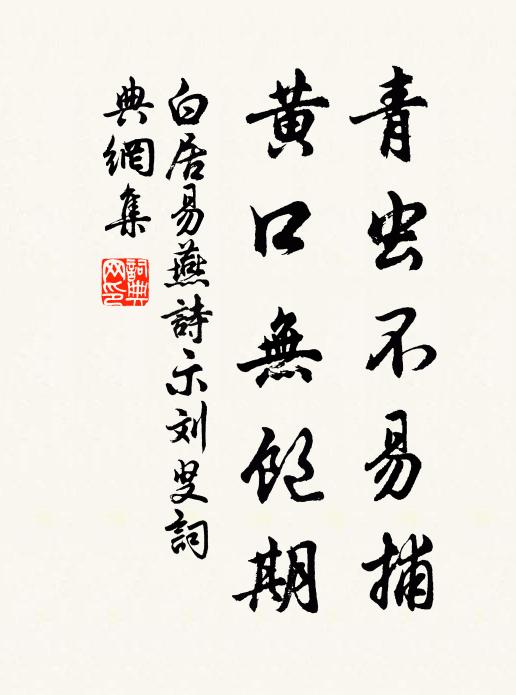 青虫不易捕
黄口無飽期
白居易燕詩示刘叟詞
典網集
詞典网印